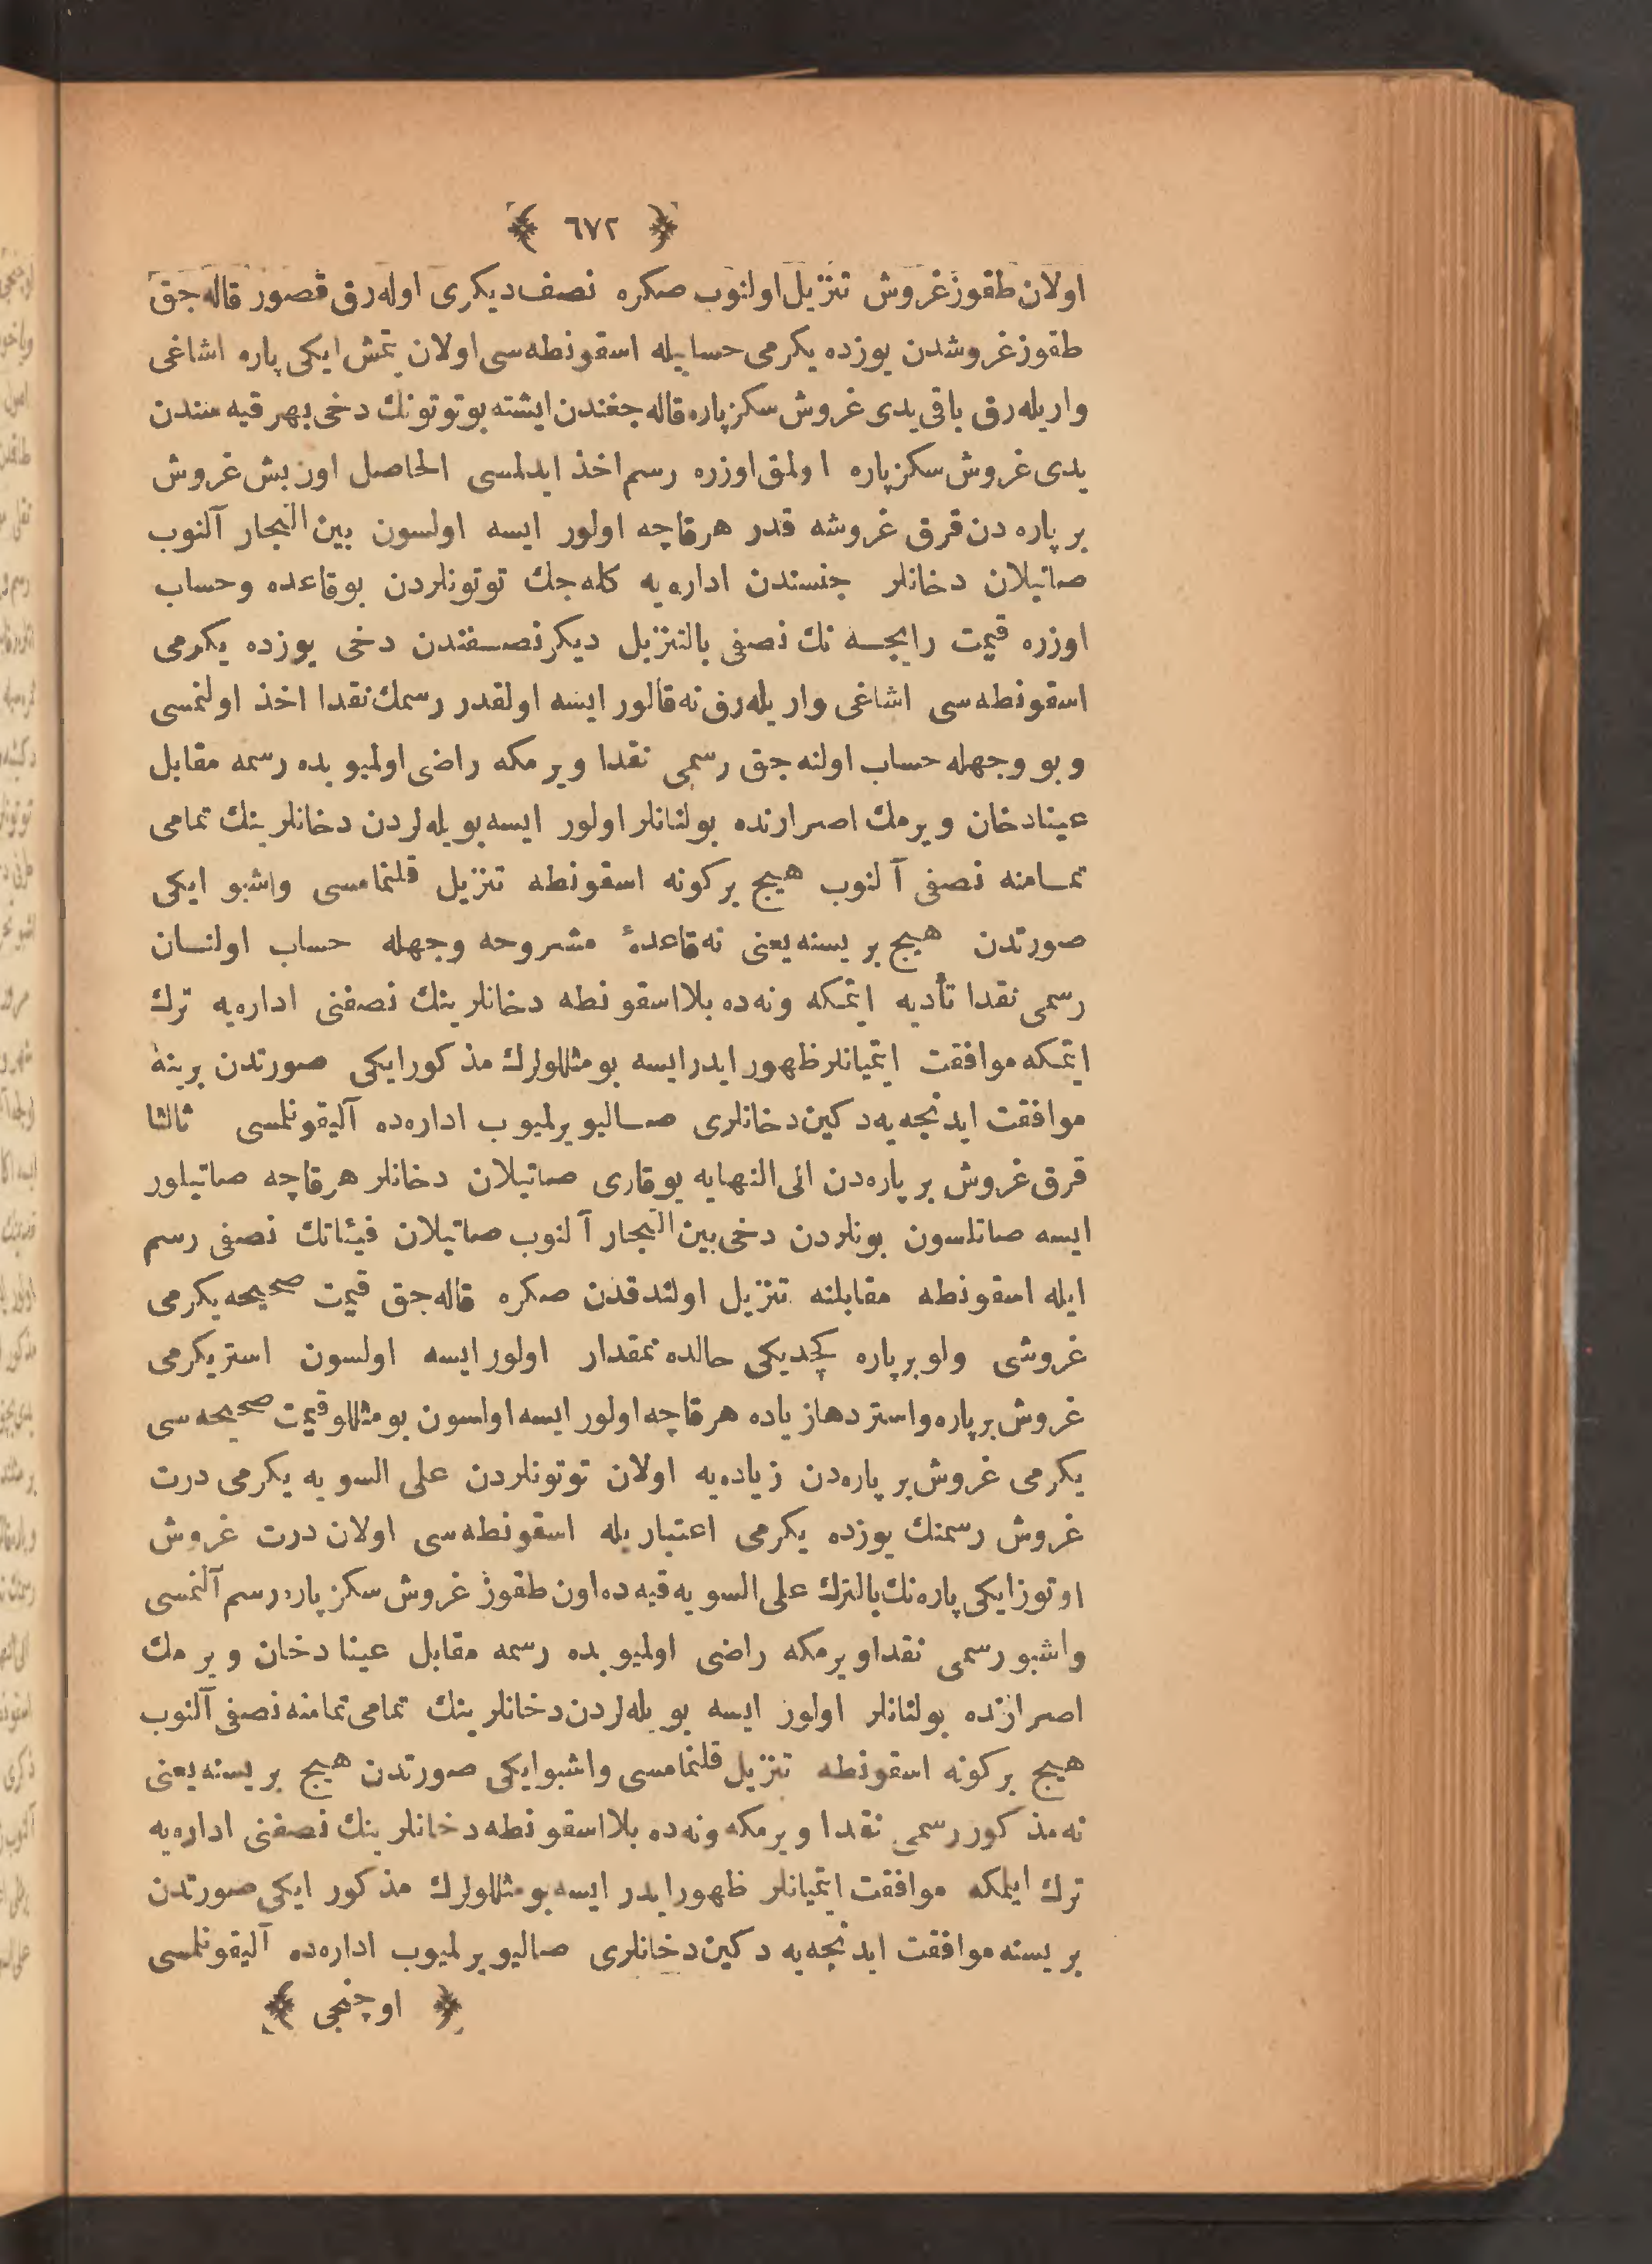 ﴿ ٦٧٢ ﴾
اولان طقوز غروش تنزيل اولنوب صكره نصف ديكرى اوله رق قصور قاله جق
طقوز غروشدن يوزده يكرمى حسابيله اسقونطه سى اولان يتمش ايكى پاره اشاغى
واريله رق باقى يدى غروش سكز پاره قاله جغندن ايشته بو توتونك دخى بهر قيه سندن
يدى غروش سكز پاره اولمق اوزره رسم اخذ ايدلمسى الحاصل اون بش غروش
بر پاره دن قرق غروشه قدر هر قاچه اولور ايسه اولسون بين التجار آلنوب
صاتيلان دخانلر جنسندن اداره يه كله جك توتونلردن بو قاعده وحساب
اوزره قيمت رايجه نك نصفى بالتنزيل ديكر نصفندن دخى يوزده يكرمى
اسقونطه سى اشاغى واريله رق نه قالور ايسه اولقدر رسمك نقدا اخذ اولنمسى
و بو وجهله حساب اولنه جق رسمى نقدا ويرمكه راضى اولميوبده رسمه مقابل
عينا دخان ويرمك اصرارنده بولنانلر اولور ايسه بويله لردن دخانلرينك تمامى
تمامنه نصفى آلنوب هيچ بركونه اسقونطه تنزيل قلنمامسى واشبو ايكى
صورتدن هيچ بريسنه يعنى نه قاعدۀ مشروحه وجهله حساب اولنان
رسمى نقدا تأديه ايتمكه ونه ده بلا اسقونطه دخانلرينك نصفنى اداره يه ترك
ايتمكه موافقت ايتميانلر ظهور ايدر ايسه بو مثللولرك مذكور ايكى صورتدن برينه
موافقت ايدنجه يه دكين دخانلرى صاليويرلميوب اداره ده آليقونلمسى ثالثا
قرق غروش بر پاره دن الى النهايه يوقارى صاتيلان دخانلر هر قاچه صاتيلور
ايسه صاتلسون بونلردن دخى بين التجار آلنوب صاتيلان فيئاتك نصفى رسم
ايله اسقونطه مقابلنه تنزيل اولندقدن صكره قاله جق قيمت صحيحه يكرمى
غروشى ولو بر پاره كچديكى حالده نمقدار اولور ايسه اولسون استر يكرمى
غروش بر پاره واستر دها زياده هر قاچه اولور ايسه اولسون بو مثللو قيمت صحيحه سى
يكرمى غروش بر پاره دن زياده يه اولان توتونلردن على السويه يكرمى درت
غروش رسمنك يوزده يكرمى اعتباريله اسقونطه سى اولان درت غروش
اوتوز ايكى پاره نك بالترك على السويه قيه ده اون طقوز غروش سكز پاره رسم آلنمسى
واشبو رسمى نقدا ويرمكه راضى اولميوبده رسمه مقابل عينا دخان ويرمك
اصرارنده بولنانلر اولور ايسه بويله لردن دخانلرينك تمامى تمامنه نصفى آلنوب
هيچ بركونه اسقونطه تنزيل قلنمامسى واشبو ايكى صورتدن هيچ بريسنه يعنى
نه مذكور رسمى نقدا ويرمكه ونه ده بلا اسقونطه دخانلرينك نصفنى اداره يه
ترك ايلمكه موافقت ايتميانلر ظهور ايدر ايسه بو مثللولرك مذكور ايكى صورتدن
بريسنه موافقت ايدنجه يه دكين دخانلرى صاليويرلميوب اداره ده آليقونلمسى
﴿ اوچنجى ﴾